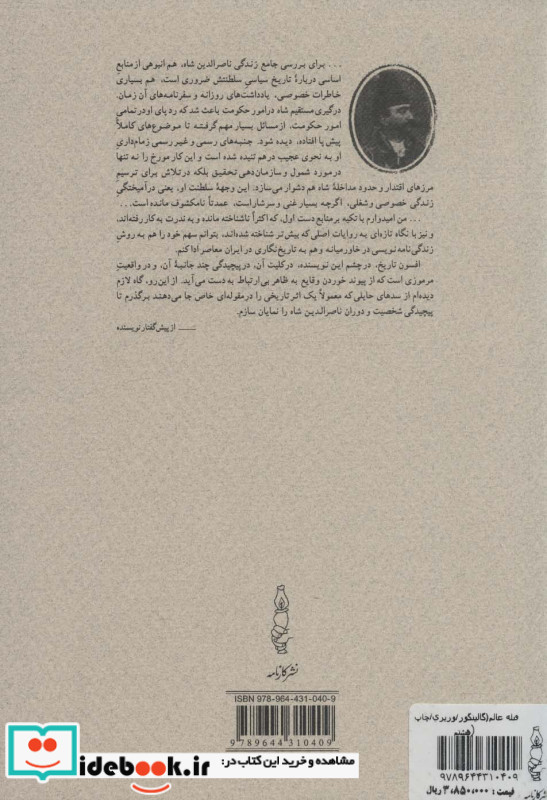 ... برای بررسی جامع زندگی ناصرالدین شاه، هم انبوهی از منابع
اساسی دربارهٔ تاریخ سیاسی سلطنتش ضروری است، هم بسیاری
خاطرات خصوصی، یادداشت‌های روزانه و سفرنامه‌های آن زمان.
درگیری مستقیم شاه در امور حکومت باعث شد که رد پای او در تمامی
امور حکومت، از مسائل بسیار مهم گرفته تا موضوع‌های کاملاً
پیش پا افتاده، دیده شود. جنبه‌های رسمی و غیر رسمی زمام‌داری
او به نحوی عجیب درهم تنیده شده است و این کار مورخ را نه تنها
در مورد شمول و سازمان‌دهی تحقیق بلکه در تلاش برای ترسیم
مرزهای اقتدار و حدود مداخلهٔ شاه هم دشوار می‌سازد. این وجههٔ سلطنت او، یعنی درآمیختگی
زندگی خصوصی و شغلی، اگرچه بسیار غنی و سرشار است، عمدتاً نامکشوف مانده است ...
... من امیدوارم با تکیه بر منابع دست اول، که اکثراً ناشناخته مانده و به ندرت به کار رفته‌اند،
و نیز با نگاه تازه‌ای به روایات اصلی که پیش‌تر شناخته شده‌اند، بتوانم سهم خود را هم به روش
زندگی‌نامه نویسی در خاورمیانه و هم به تاریخ‌نگاری در ایران معاصر ادا کنم.
افسون تاریخ، در چشم این نویسنده، در کلیت آن، در پیچیدگی چند جانبهٔ آن، و در واقعیتِ
مرموزی است که از پیوند خوردن وقایع به ظاهر بی‌ارتباط به دست می‌آید. از این‌رو، گاه لازم
دیده‌ام از سدهای حایلی که معمولاً یک اثر تاریخی را در مقوله‌ای خاص جا می‌دهند برگذرم تا
پیچیدگی شخصیت و دوران ناصرالدین شاه را نمایان سازم.
از پیش‌گفتار نویسنده
نشر کارنامه
ISBN 978-964-431-040-9
9 789644 310409
قبله عالم(گالینگور/وزیری/چاپ
هشتم)
۹۷۸۹۶۴۴۳۱۰۴۰۹
قیمت: ۳،۸۵۰،۰۰۰ ریال
نشر کارنامه
مشاهده و خرید این کتاب در:
idebook.ir